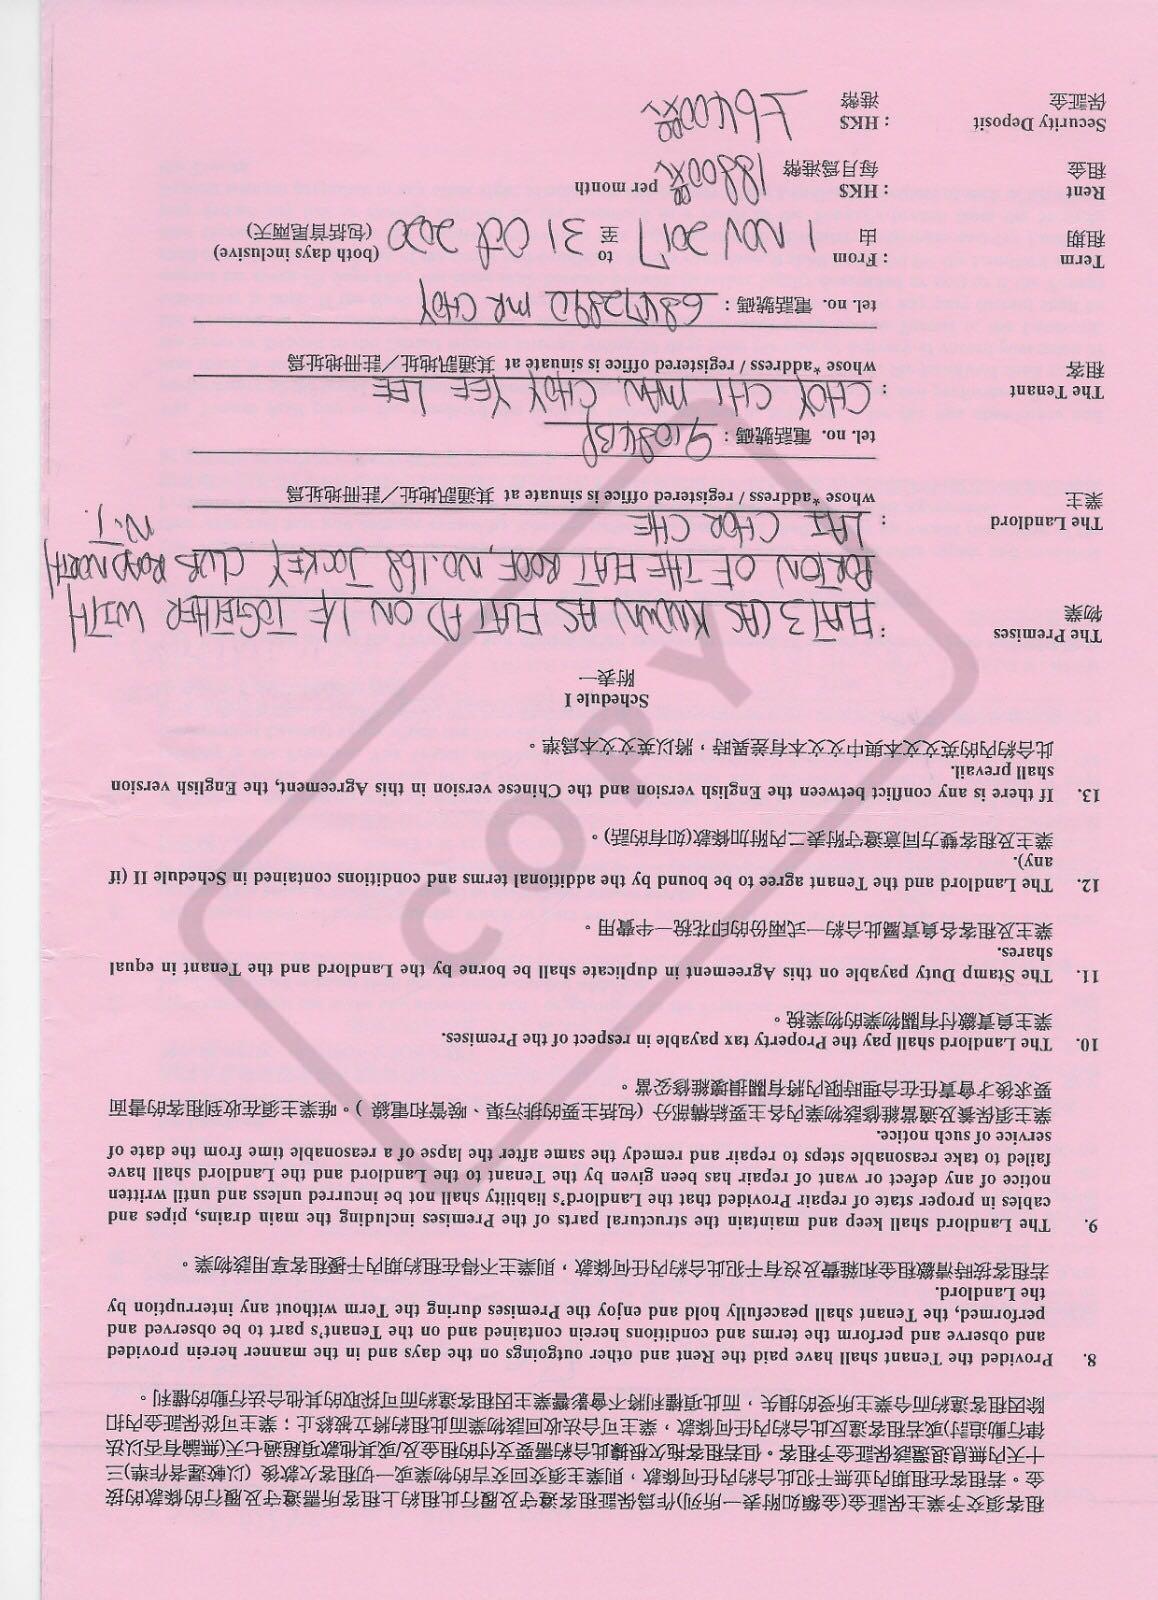 租客須交予業主保証金(金額如附表一所列)作爲保証租客遵守及履行此租約上租客所需遵守及履行的條款的按
金。若租客在租期內並無干犯此合約內任何條款，則業主須交回交吉的物業或一切租客欠款後 (以較遲者作準)三
十天內無息退還該保証金予租客。但若租客拖欠根據此合約需要支付的租金及/或其他款項超過七天(無論有否以法
律行動追討)或若租客違反此合約內任何條款，業主可合法收回該物業而此租約將立被終止；業主可從保証金內扣
除因租客違約而令業主所受的損失，而此項權利將不會影響業主因租客違約而可採取的其他合法行動的權利。
8. Provided the Tenant shall have paid the Rent and other outgoings on the days and in the manner herein provided
and observe and perform the terms and conditions herein contained and on the Tenant's part to be observed and
performed, the Tenant shall peacefully hold and enjoy the Premises during the Term without any interruption by
the Landlord.
若租客按時清繳租金和雜費及沒有干犯此合約內任何條款，則業主不得在租約期內干擾租客享用該物業。
9. The Landlord shall keep and maintain the structural parts of the Premises including the main drains, pipes and
cables in proper state of repair Provided that the Landlord's liability shall not be incurred unless and until written
notice of any defect or want of repair has been given by the Tenant to the Landlord and the Landlord shall have
failed to take reasonable steps to repair and remedy the same after the lapse of a reasonable time from the date of
service of such notice.
業主須保養及適當維修該物業內各主要結構部分 (包括主要的排污渠、喉管和電線 )。唯業主須在收到租客的書面
要求後才會責任在合理時限內將有關損壞維修妥當。
10. The Landlord shall pay the Property tax payable in respect of the Premises.
業主負責繳付有關物業的物業稅。
11. The Stamp Duty payable on this Agreement in duplicate shall be borne by the Landlord and the Tenant in equal
shares.
業主及租客各負責屬此合約一式兩份的印花稅一半費用。
12. The Landlord and the Tenant agree to be bound by the additional terms and conditions contained in Schedule II (if
any).
業主及租客雙方同意遵守附表二內附加條款(如有的話)。
13. If there is any conflict between the English version and the Chinese version in this Agreement, the English version
shall prevail.
此合約內的英文文本與中文文本有差異時，將以英文文本爲準。
Schedule I
附表一
The Premises : FLAT 3 (AS KNOWN AS FLAT A) ON 1/F TOGETHER WITH
物業
PORTION OF THE FLAT ROOF, NO.168 JOCKEY CLUB ROAD NORTH
N.T.
The Landlord : LAI CHOR CHE
業主 whose *address / registered office is sinuate at 其通訊地址／註冊地址爲
tel. no. 電話號碼：
The Tenant : CHOY CHI MAN, CHOY YEE LEE
租客 whose *address / registered office is sinuate at 其通訊地址／註冊地址爲
tel. no. 電話號碼： MR CHOY
Term : From 1 NOV 2017 to 31 Oct 2020 (both days inclusive)
租期 由 至 (包括首尾兩天)
Rent : HK$ 18800 per month
租金 每月爲港幣
Security Deposit : HK$
保証金 港幣
COPY